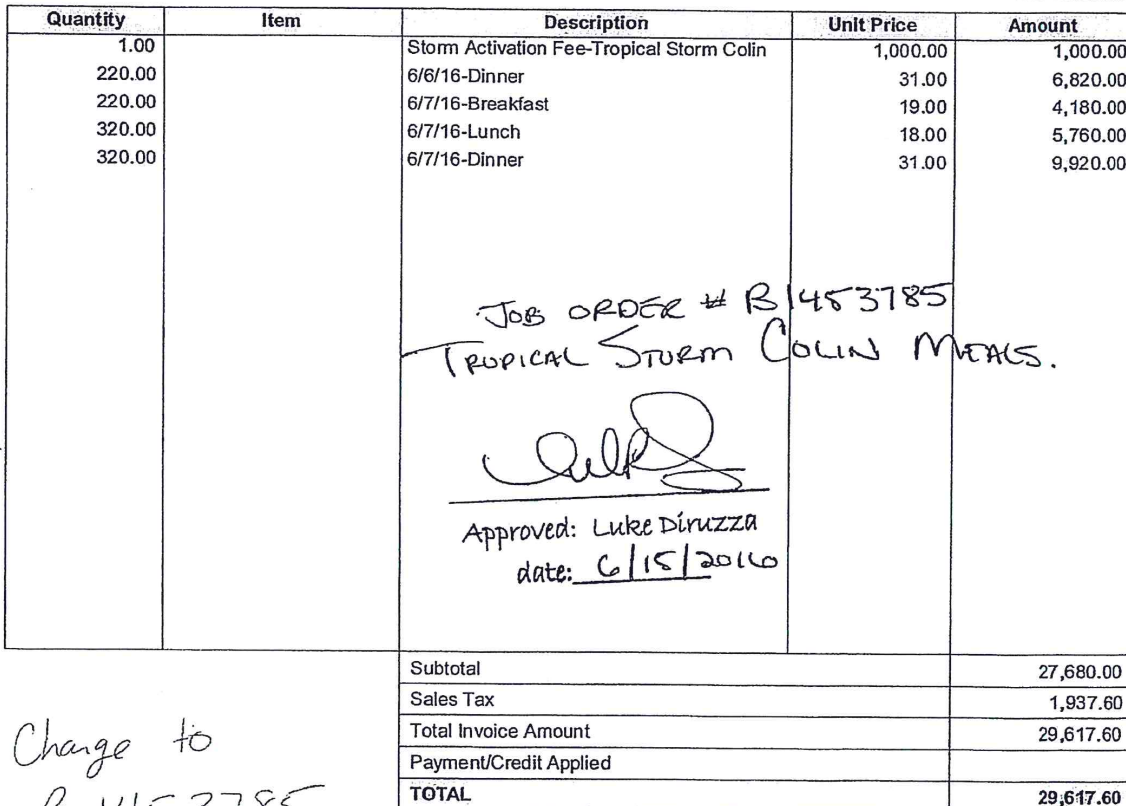 Quantity Item Description Unit Price Amount
1.00 Storm Activation Fee-Tropical Storm Colin 1,000.00 1,000.00
220.00 6/6/16-Dinner 31.00 6,820.00
220.00 6/7/16-Breakfast 19.00 4,180.00
320.00 6/7/16-Lunch 18.00 5,760.00
320.00 6/7/16-Dinner 31.00 9,920.00
JOB ORDER # B1453785
TROPICAL STORM COLIN MEALS.
Approved: Luke Diruzza
date: 6/15/2016
Subtotal 27,680.00
Sales Tax 1,937.60
Total Invoice Amount 29,617.60
Payment/Credit Applied
TOTAL 29,617.60
Change to
B 1453785